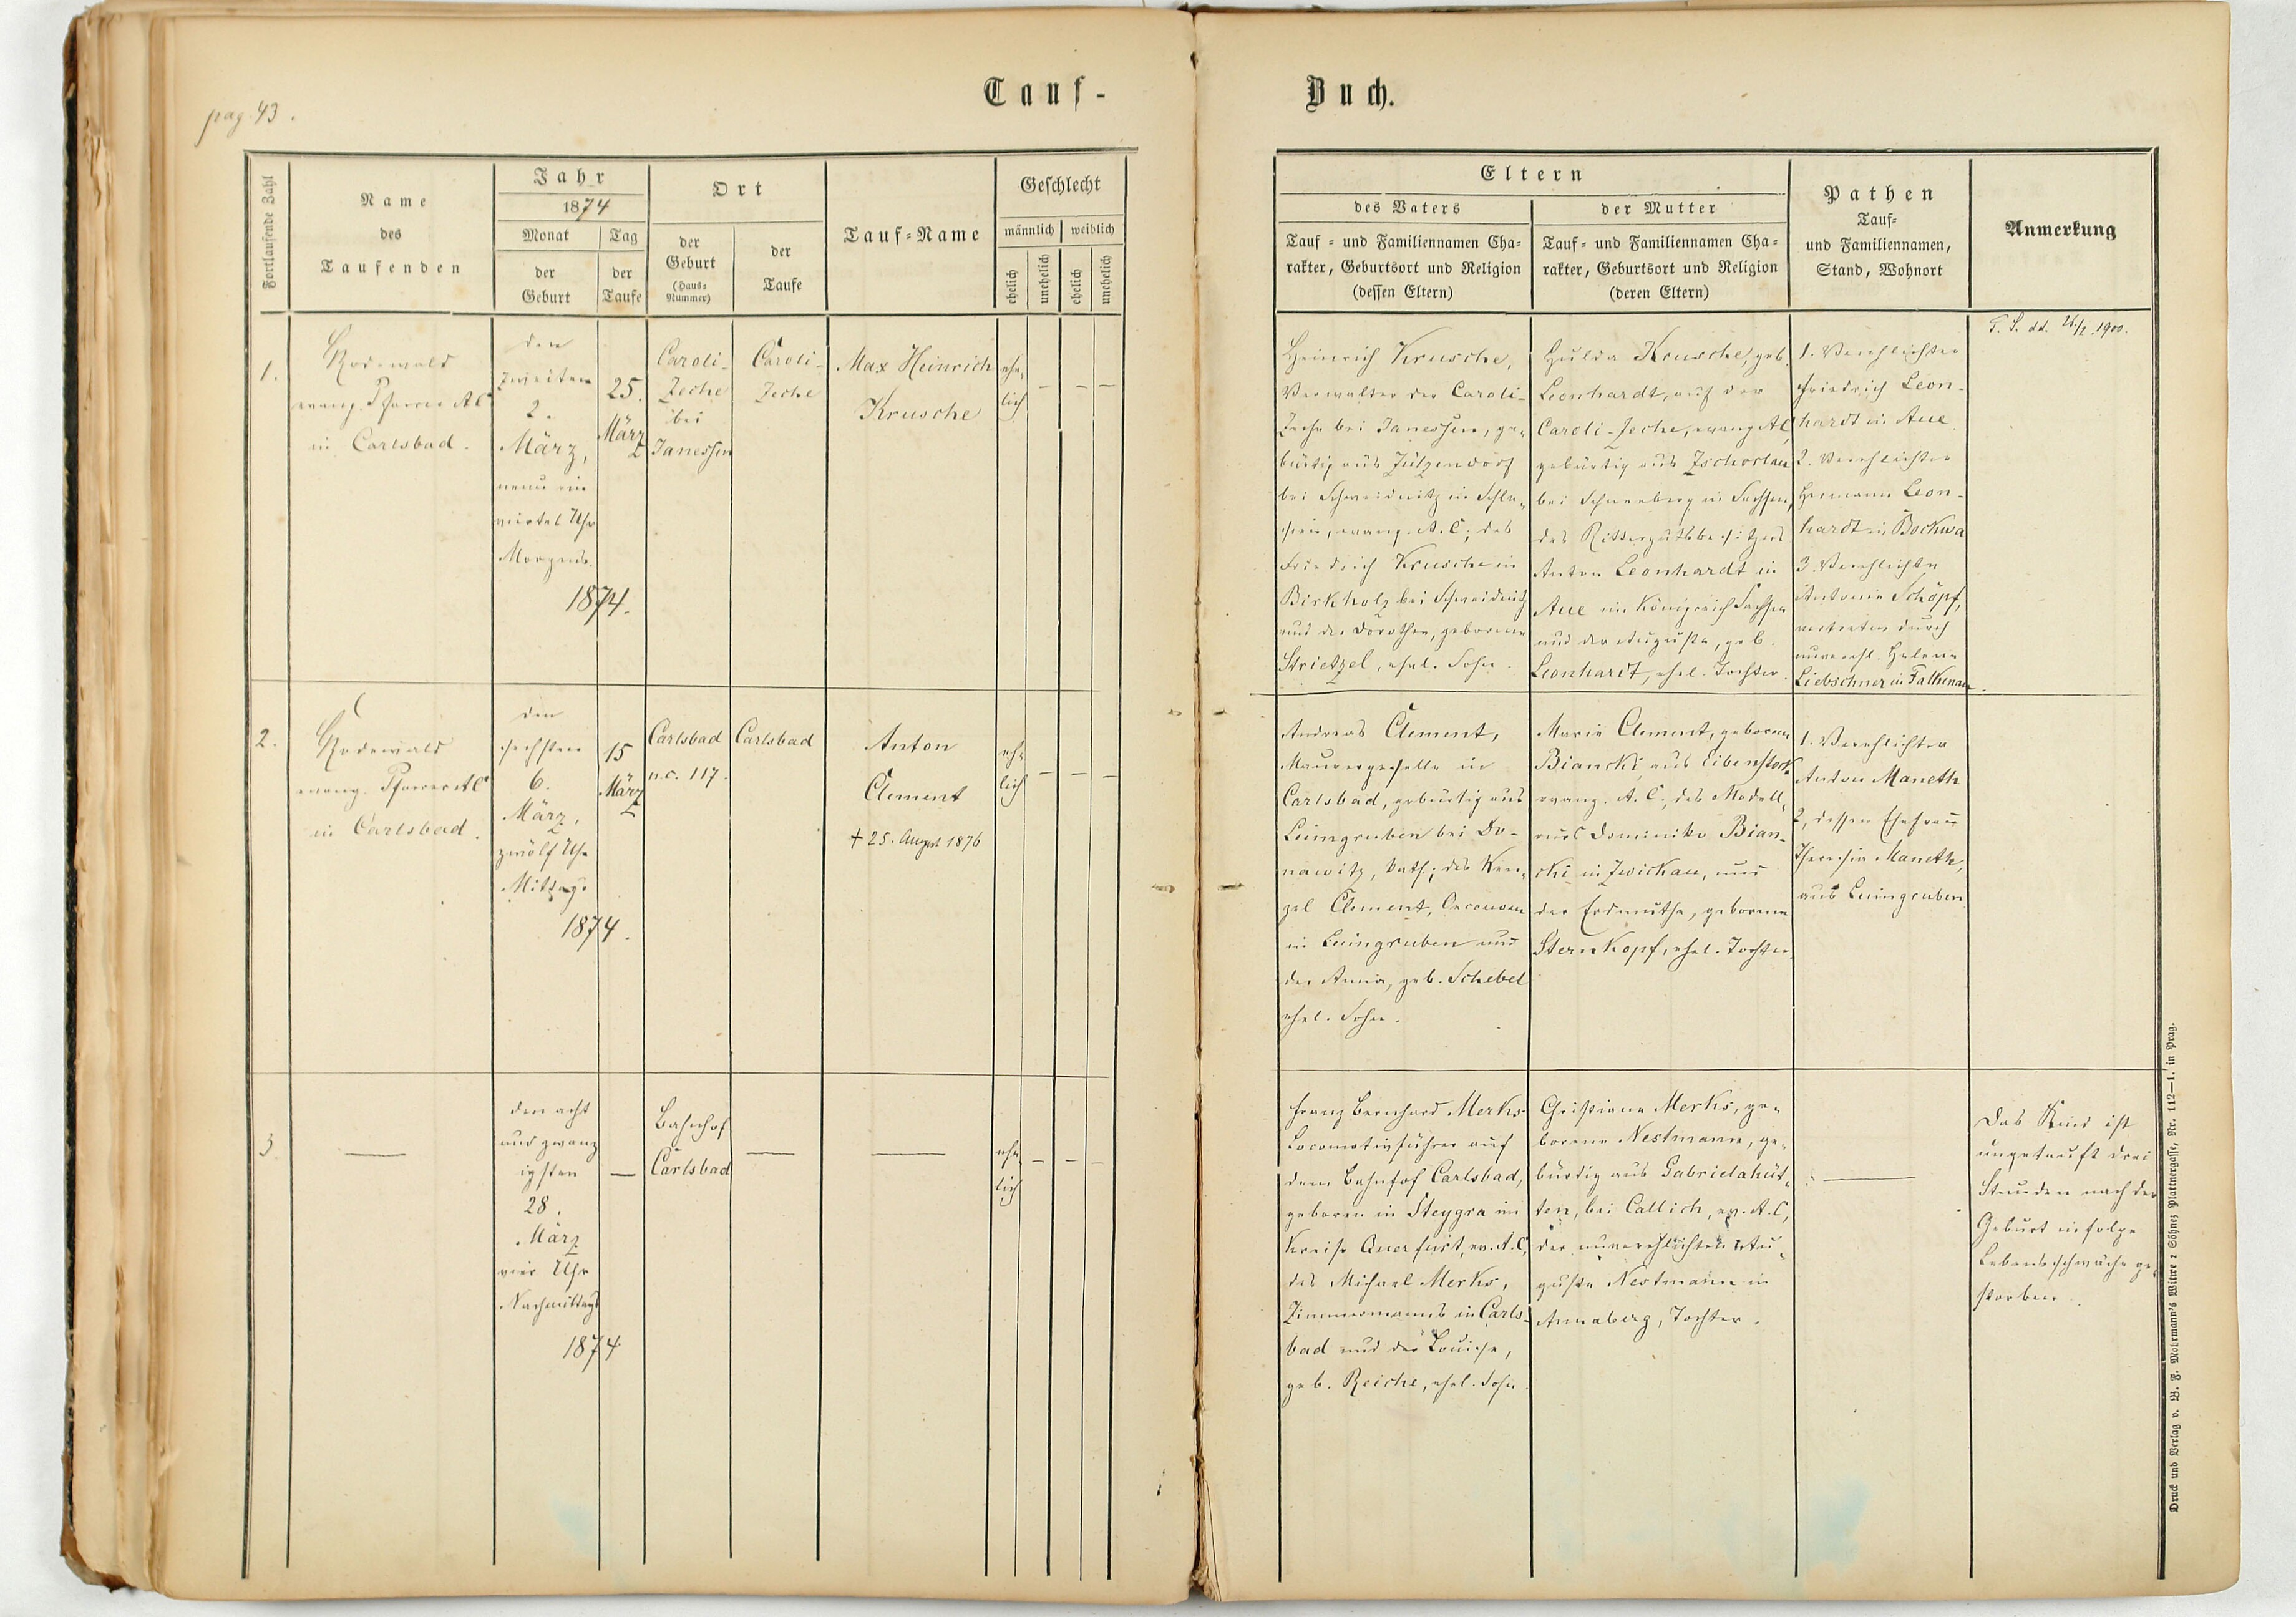 pag. 43.
Tauf-
Buch.
Fortlaufende Zahl
Name
des
Taufenden
Jahr
1874
Monat
Tag
der
Geburt
der
Taufe
Ort
der
Geburt
(Haus-
Nummer)
der
Taufe
Tauf-Name
Geschlecht
männlich
weiblich
ehelich
unehelich
ehelich
unehelich
Eltern
des Vaters
der Mutter
Tauf- und Familiennamen Cha-
rakter, Geburtsort und Religion
(dessen Eltern)
Tauf- und Familiennamen Cha-
rakter, Geburtsort und Religion
(deren Eltern)
Pathen
Tauf-
und Familiennamen,
Stand, Wohnort
Anmerkung
1.
Rodewald
evang. Pfarrer AC
in Carlsbad.
den
zweiten
2.
März,
neun ein
viertel Uhr
Morgens.
1874.
25.
März
Caroli-
Zeche
bei
Janessen
Caroli-
Zeche
Max Heinrich
Krusche
ehe-
lich
—
—
—
Heinrich Krusche,
Verwalter der Caroli-
Zeche bei Janessen, ge-
bürtig aus Jülzendorf
bei Schweidnitz in Schle-
sien, evang. A.C; des
Friedrich Krusche in
Birkholz bei Schweidnitz
und der Dorothea, geborene
Strietzel, ehel. Sohn.
Hulda Krusche, geb.
Leonhardt, auf der
Caroli-Zeche, evang AC,
gebürtig aus Zschorlau
bei Schneeberg in Sachsen,
des Rittergutsbesitzers
Anton Leonhardt in
Aue im Königreich Sachsen
und der Auguste, geb.
Leonhardt, ehel. Tochter.
1. Verehlichter
Friedrich Leon-
hardt in Aue
2. Verehlichter
Hermann Leon-
hardt in Bockwa
3. Verehlichte
Antonie Schöpf,
vertreten durch
unverehl. Helene
Liebschner in Falkenau.
T. S. dd. 26/2. 1900.
2.
Rodewald
evang. Pfarrer AC
in Carlsbad.
den
sechsten
6.
März,
zwölf Uhr
Mittags
1874.
15
März
Carlsbad
n.c. 117.
Carlsbad
Anton
Clement
† 25. August 1876
ehe-
lich
—
—
—
Andreas Clement,
Maurergeselle in
Carlsbad, gebürtig aus
Leimgruben bei Do-
nawitz, kath; des Wen-
zel Clement, Oeconom
in Leimgruben und
der Anna, geb. Schebel
ehel. Sohn.
Marie Clement, geborene
Biancki aus Eibenstock
evang. A.C. des Modell-
eurs Dominiko Bian-
cki in Zwickau, und
der Erdmuthe, geborene
Sternkopf, ehel. Tochter.
1. Verehlichter
Anton Maneth
2, dessen Ehefrau
Theresia Maneth,
aus Leimgruben
3.
—
den acht
und zwanz
igsten
28.
März
vier Uhr
Nachmittags
1874
—
Bahnhof
Carlsbad
—
—
ehe-
lich
—
—
—
Franz Bernhard Merks
Locomotivführer auf
dem Bahnhof Carlsbad,
geboren in Steygra im
Kreise Querfurt, ev. A.C,
des Michael Merks,
Zimmermanns in Carls-
bad und der Louise,
geb. Reiche, ehel. Sohn.
Christiane Merks, ge-
borene Nestmann, ge-
bürtig aus Gabrielahüt-
ten, bei Callich, ev. A.C,
der unverehlichten Au-
guste Nestmann in
Annaberg, Tochter.
—
Das Kind ist
ungetauft drei
Stunden nach der
Geburt in folge
Lebensschwäche ge-
storben.
Druck und Verlag v. W. F. Mokrmann's Witwe & Söhne, Plattnergasse, Nr. 112—1. in Prag.